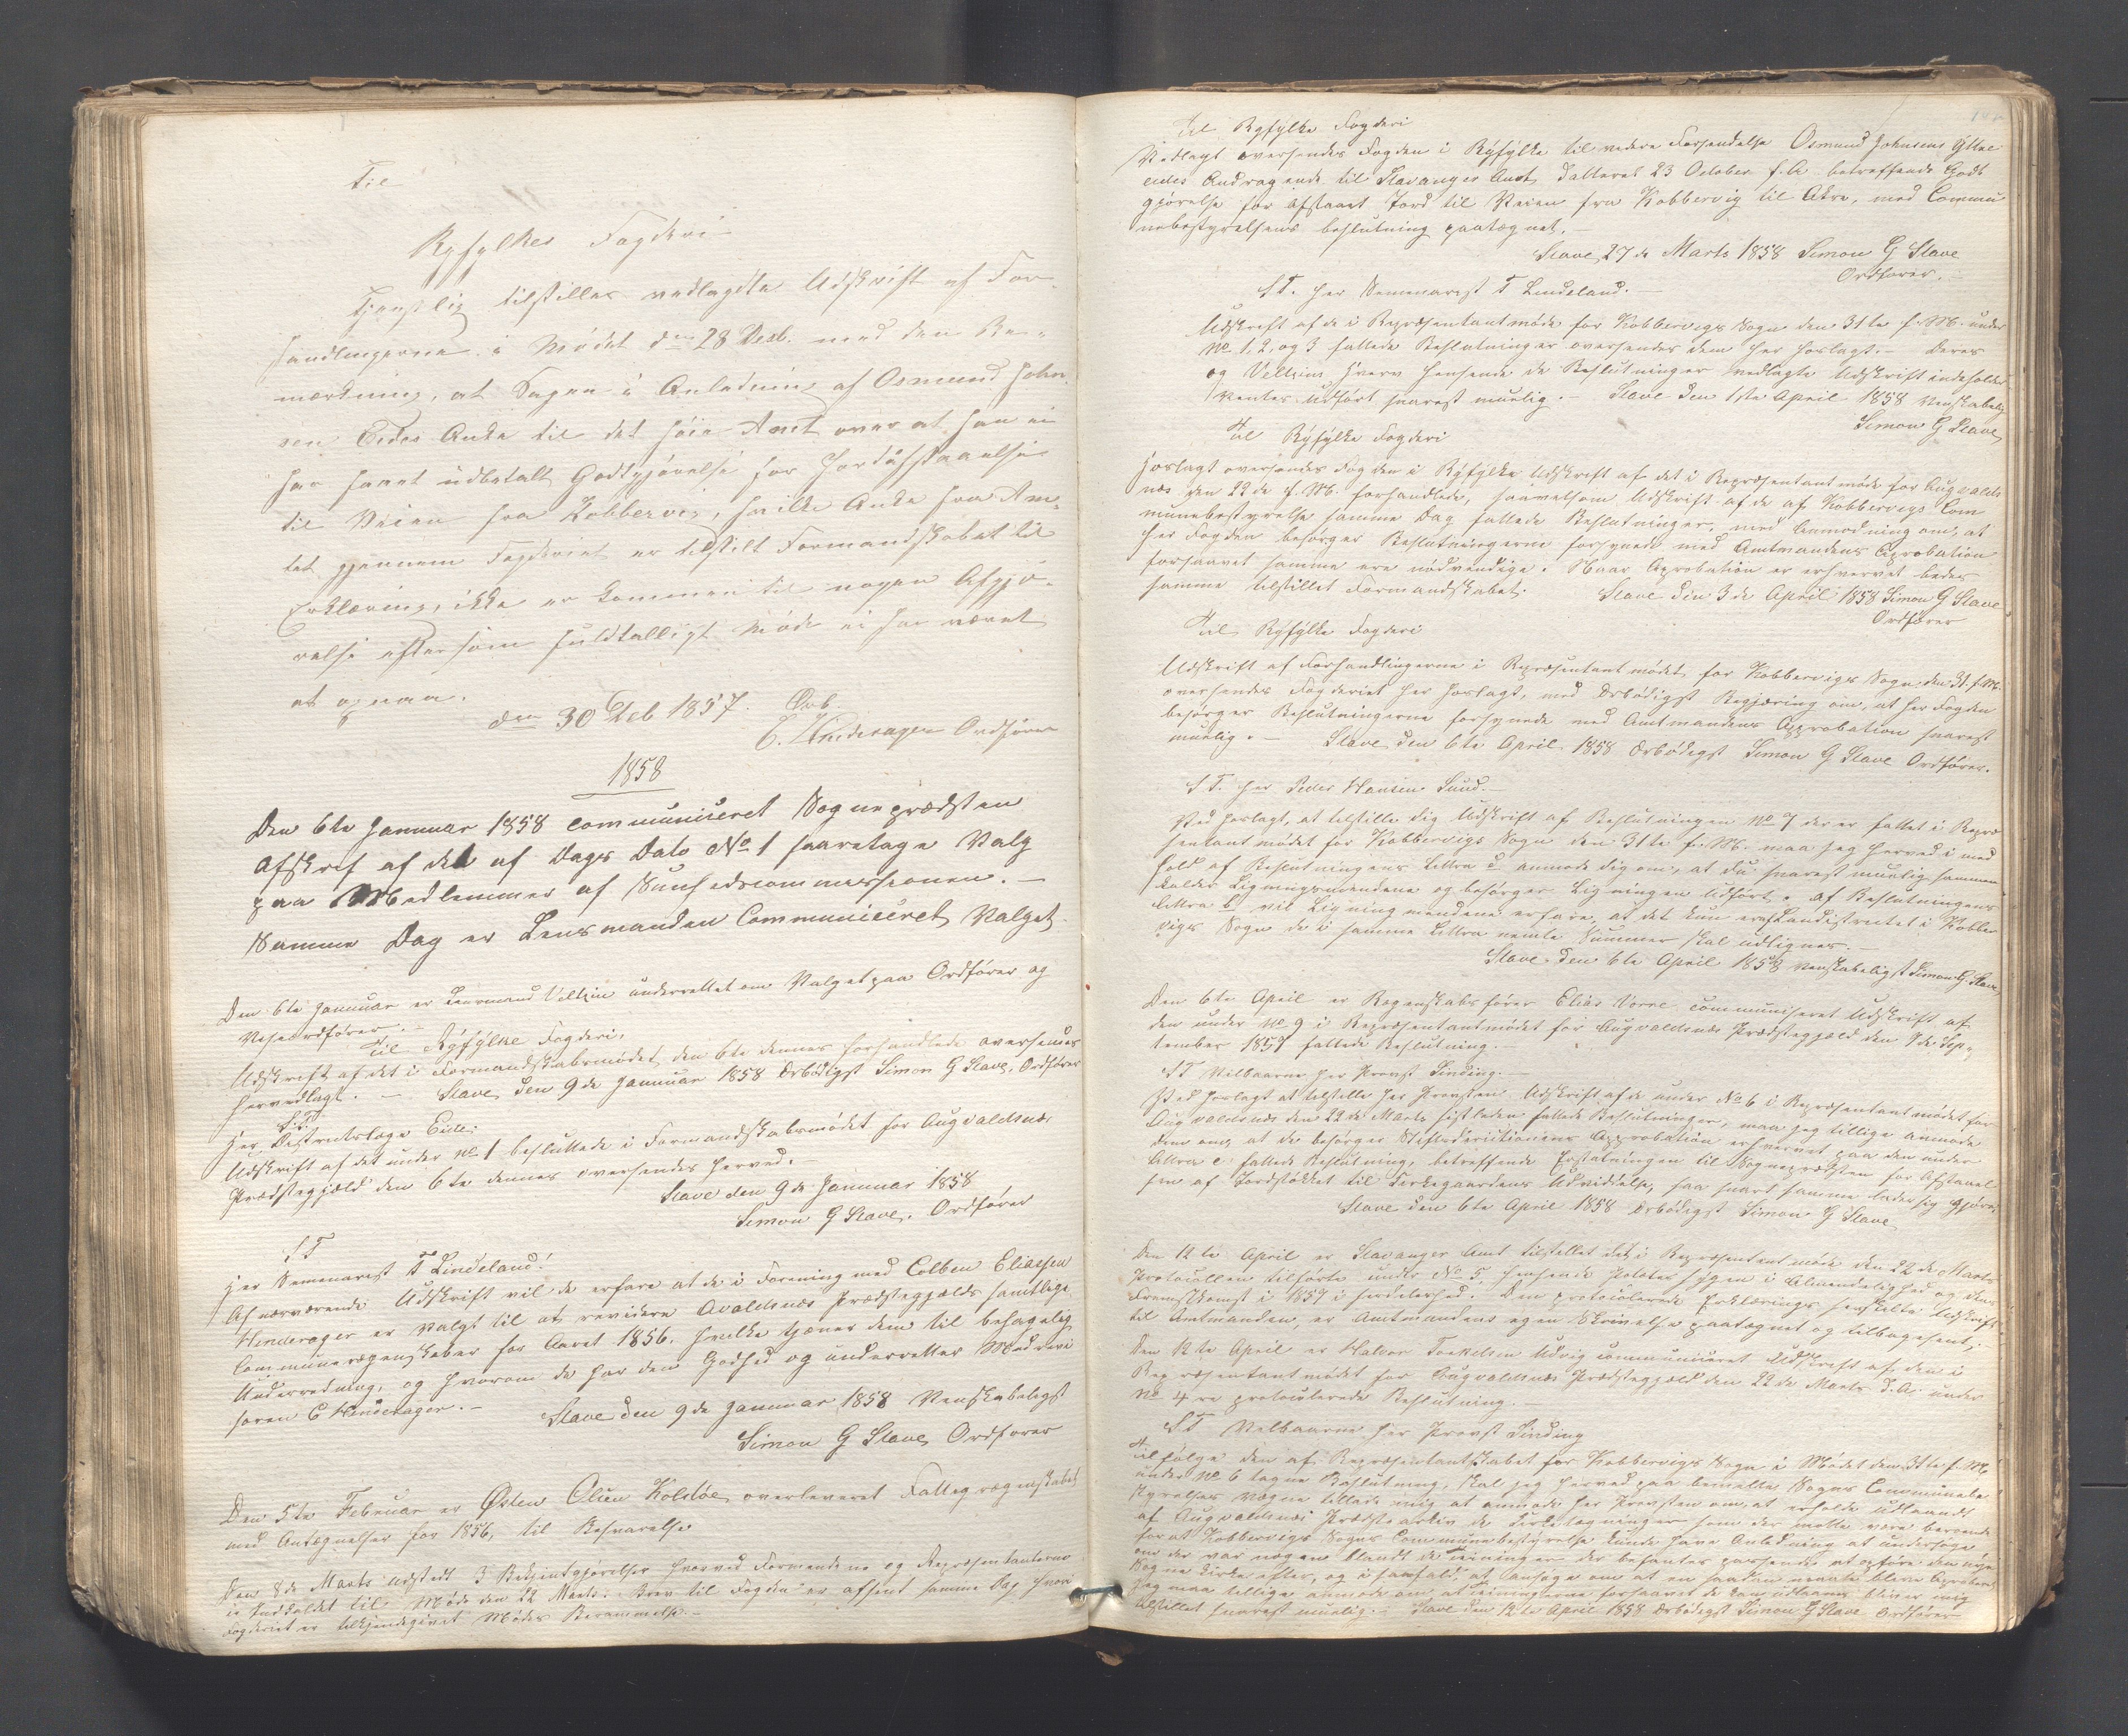 Til
Ryfylkes Fogderi
Tjenstlig tilstilles vedlagte Udskrift af For-
handlingerne i Mødet den 28 Decb. med den Be-
mærkning, at Sagen i Anledning af Osmund John-
sen Eides Anke til det høie Amt over at han ei
har faaet udbetalt Godtgjørelse for Jordafstaaelse
til Veien fra Kobbervig, hvilke Anke fra Am-
tet gjennem Fogderiet er tilstilt Formandskabet til
Erklæring, ikke er kommen til nogen Afgjø-
relse eftersom fuldtalligt Møde ei har været
at opnaa.
den 30 Deb 1857. Ærb.
C. Hinderager Ordfører
1858
Den 6te Januar 1858 communiceret Sognepræsten
Afskrif af det af Dags Dato No 1 foaretage Valg
paa Medlemmer af Sunhedscommissionen. —
Samme Dag er Lensmanden Communiceret Valget
Den 6te Januar er Lensmand Veltzin underrettet om Valget paa Ordfører og
Viseordfører. —
Til Ryfylke Fogderi,
Udskrift af det i Formandskabsmødet den 6te dennes forhandlede oversendes
hervedlagt. — Stave den 9de Januar 1858 Ærbødigst Simon G Stave, Ordfører
S.T.
Her Distriktslæge Eide.
Udskrift af det under No 1 besluttede i Formandskabsmødet for Augvaldsnæs
Præstegjæld den 6te dennes oversendes herved. —
Stave den 9de Januar 1858
Simon G Stave. Ordfører
S T
Her Semenarist T Lindeland!
Af nærværende Udskrift vil de erfare at de i Forening med Colben Eliassen
Hinderager er valgt til at revidere Avaldsnæs Præstegjælds samtlige
Communeregnskaber for Aaret 1856, hvilke tjener dem til behagelig
Underretning, og hvorom de har den Godhed og underretter Medrevi
soren C Hinderager. —
Stave den 9de Januar 1858 Venskabeligst
Simon G Stave Ordfører
Den 5te Februar er Østen Olsen Kolstøe overleveret Fattigregnskabet
med Antegnelser for 1856, til Besvarelse
Den 8de Marts udstedt 3 Bekjentgjørelser hvorved Formendene og Repræsentanterne
er Indkaldet til Møde den 22 Marts. Brev til Fogden er afsent samme Dag hvori
Fogderiet er tilkjendegivet Mødets Berammelse. —
Til Ryfylke Fogderi
Vedlagt oversendes Fogden i Ryfylke til videre Forsendelse Osmund Johnsens Ytre
eides Andragende til Stavanger Amt datteret 23 October f. A. betreffende Godt
gjørelse for afstaaet Jord til Veien fra Kobbervig til Akre, med Commu
nebestyrelsens beslutning paategnet. —
Stave 27de Marts 1858 Simon G Stave
Ordfører. —
S T. Her Semenarist T Lindeland. —
Udskrift af de i Repræsentantmøde for Kobbervigs Sogn den 31te f. M. under
No 1. 2. og 3 fattede Beslutninger oversendes dem her hoslagt. — Deres
og Veltzins Hverv henseende de Beslutninger vedlagte Udskrift indeholder
ventes udført snarest muelig. — Stave den 1ste April 1858 Venskabelig
Simon G Stave
Til Ryfylke Fogderi
Hoslagt oversendes Fogden i Ryfylke Udskrift af det i Repræsentantmøde for Augvalds
næs den 22de f. M. forhandlede, saavelsom Udskrift af de af Kobbervigs Com
munebestyrelse samme Dag fattede Beslutninger, med Anmodning om, at
Her Fogden besørger Beslutningerne forsynede med Amtmandens Aprobation
forsaavet samme ere nødvendige. Naar Aprobation er erhvervet bedes
samme tilstillet Formandskabet. Stave den 3de April 1858 Simon G Stave
Ordfører
Til Ryfylke Fogderi
Udskrift af Forhandlingerne i Repræsentantmødet for Kobbervigs Sogn den 31. f. M.
oversendes Fogderiet her hoslagt, med Ærbødigst Begjæring om, at Her Fogden
besørger Beslutningerne forsynede med Amtmandens Approbation snarest
muelig. — Stave den 6te April 1858 Ærbødigst Simon G Stave Ordfører.
S T. Her Peder Hansen Sund. —
Ved hoslagt, at tilstille dig Udskrift af Beslutningen No 7 der er fattet i Repræ
sentantmødet for Kobbervigs Sogn den 31te f. M. maa jeg herved i med
hold af Beslutningens Littra d anmode dig om, at du snarest muelig sammen
kalder Ligningsmendene og besørger Ligningen udført. af Beslutningens
Littra b vil Ligningmendene erfare, at det kun er Landistrictet i Kobber
vigs Sogn de i samme Littra nemte Summer skal udlignes. —
Stave den 6te April 1858 Venskabeligst Simon G. Stave
Den 6te April er Regenskabsfører Elias Vorre communiseret Udskrift af
den under No 9 i Repræsentantmødet for Augvaldsnæs Præstegjæld den 9de Sep-
tember 1857 fattede Beslutning. —
S T Velbaarne Her Provst Sinding. —
Ved hoslagt at tilstille Her Provsten Udskrift af de under No 6 i Repræsentantmødet for
Augvaldsnæs den 22de Marts sistleden fattede Beslutninger, maa jeg tillige anmode
dem om, at de besørger Stiftsdirectionens Approbation erhvervet paa den under
Littra c fattede Beslutning, betreffende Erstatningen til Sognepræsten for Afstaael
sen af Jordstøkket til Kirkegaardens Udvidelse, saa snart samme lader sig gjøre.
Stave den 6te April 1858 Ærbødigst Simon G Stave
Den 12te April er Stavanger Amt tilstillet det i Repræsentantmøde den 22de Marts
Protocollen tilførte under No 5, henseende Potetessygen i Almindelighed og dens
Fremstkomst i 1857 i serdeleshed. Den protocolerede Erklærings serskilte Udskrift
til Amtmanden, er Amtmandens egen Skrivelse paategnet og tilbagesent,
Den 12te April er Halvor Torkelsen Udvig communiceret Udskrift af den i
Repræsentantmødet for Augvaldsnæs Præstegjæld den 22de Marts d. A. under
No 4re protocolerede Beslutning. —
S T Velbaarne Her Provst Sinding
Tilfølge den af Repræsentantskabet for Kobbervigs Sogn i Mødet den 31te f. M.
under No 6 tagne Beslutning, skal jeg herved paa bemelte Sogns Communebe
styrelses Vegne tillade mig at anmode Her Provsten om, at erholde udlaant
af Augvaldsnæs Præstearkiv de Kirketegninger som der motte være beroende
for at Kobbervigs Sogns Communebestyrelse kunde have Anledning at undersøge
om der var nogen blandt de Teininger der befantes passende at opføre den nye
Sogne Kirke efter, og i saafald at ansøge om at en saadan maate blive Aproberet
Jeg maa tillige anmode om at Teiningerne forsaavet de kan udlaanes bliver mig
tilstillet snarest muelig. — Stave den 12te April 1858 Ærbødigst Simon G Stave Ordfører